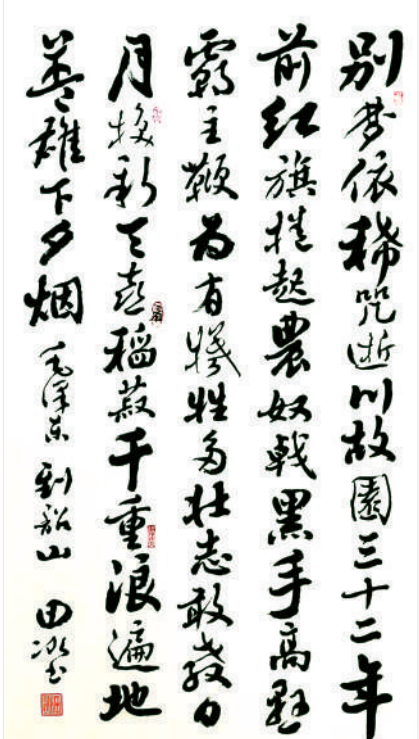 别梦依稀咒逝川故園三十二年
前红旗捲起農奴戟黑手高悬
霸主鞭为有犧牲多壮志敢教日
月换新天喜稻菽千重浪遍地
英雄下夕烟 毛泽东 到韶山 田冰书